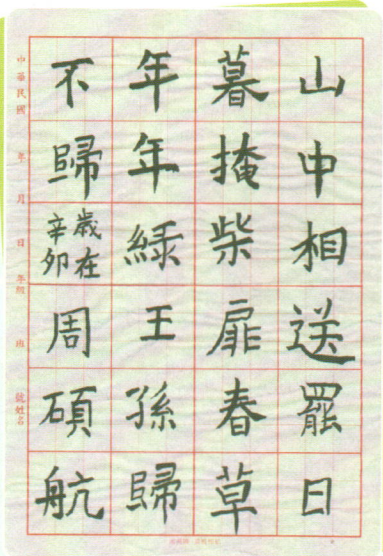 山中相送罷日
暮掩柴扉春草
年年綠王孫歸
不歸歲在辛卯周碩航
中華民國 年 月 日 年 班 號姓名